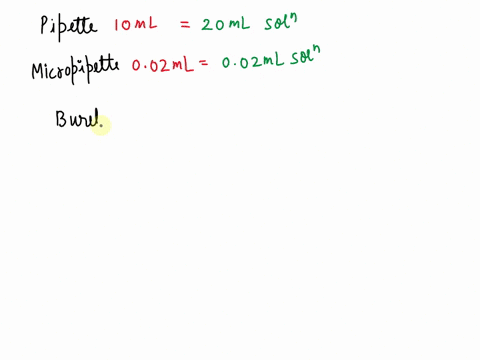 Pipette 10 mL = 20 mL solⁿ
Micropipette 0.02 mL = 0.02 mL solⁿ
Buret